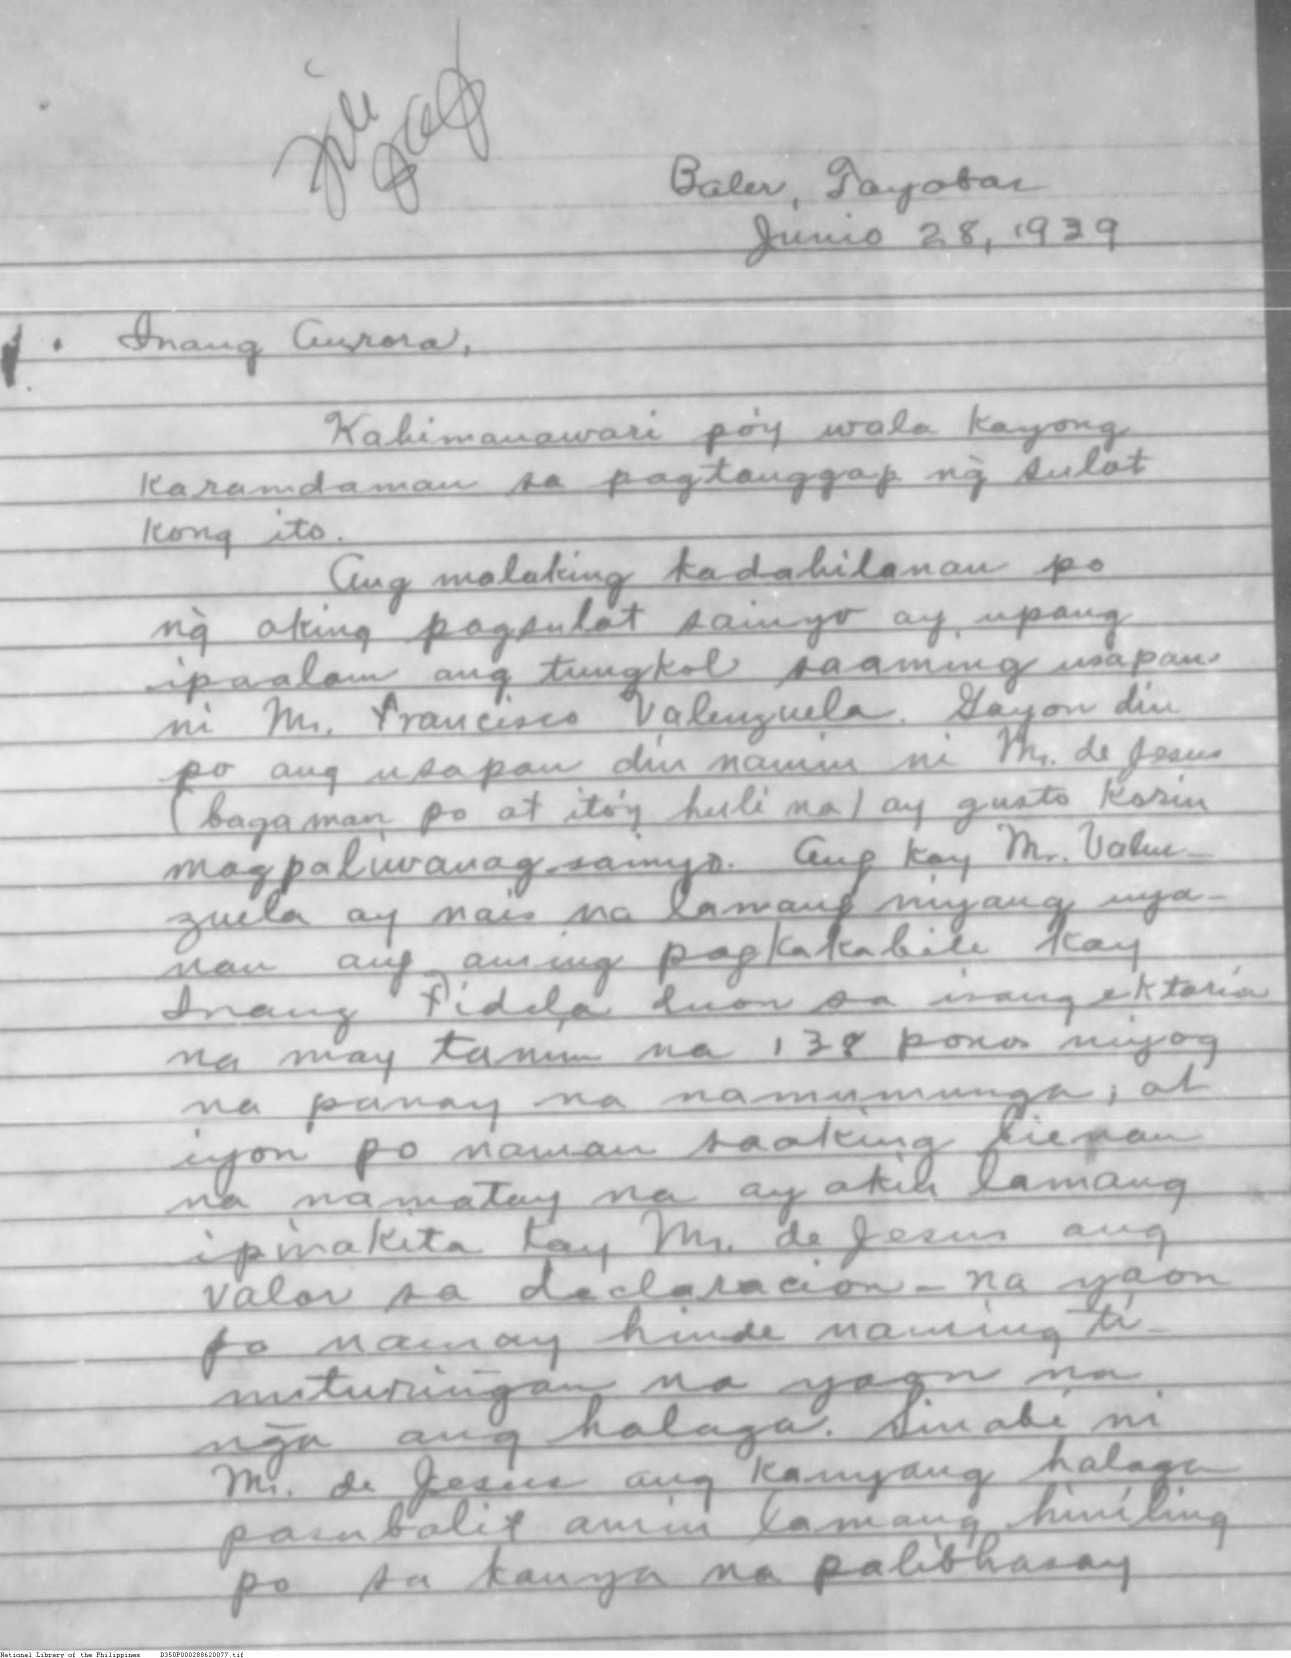 File
Baler, Tayabas
Junio 28, 1939
Inang Aurora,
Kahimanawari pó'y wala kayong
karamdaman sa pagtanggap ng̃ sulat
kong ito.
Ang malaking kadahilanan po
ng̃ aking pagsulat sainyo ay upang
ipaalam ang tungkol saaming usapan
ni Mr. Francisco Valenzuela. Gayon din
po ang usapan din namin ni Mr. de Jesus
(bagaman po at itó'y huli na) ay gusto korin
magpaliwanag sainyo. Ang kay Mr. Valen-
zuela ay nais na lamang niyang uya-
nan ang aming pagkakabili kay
Inang Fidela duon sa isang ektaria
na may tanim na 138 ponos niyog
na panay na namumunga; at
iyon po naman saaking bienan
na namatay na ay akin lamang
ipinakita kay Mr. de Jesus ang
valor sa declaracion - na yaon
po namay hinde naming ti-
nuturing̃an na yaon na
ng̃a ang halaga. Sinabi ni
Mr. de Jesus ang kanyang halaga
pasubalit amin lamang hiniling
po sa kanya na palibhasay
National Library of the Philippines D350P000288620077.tif